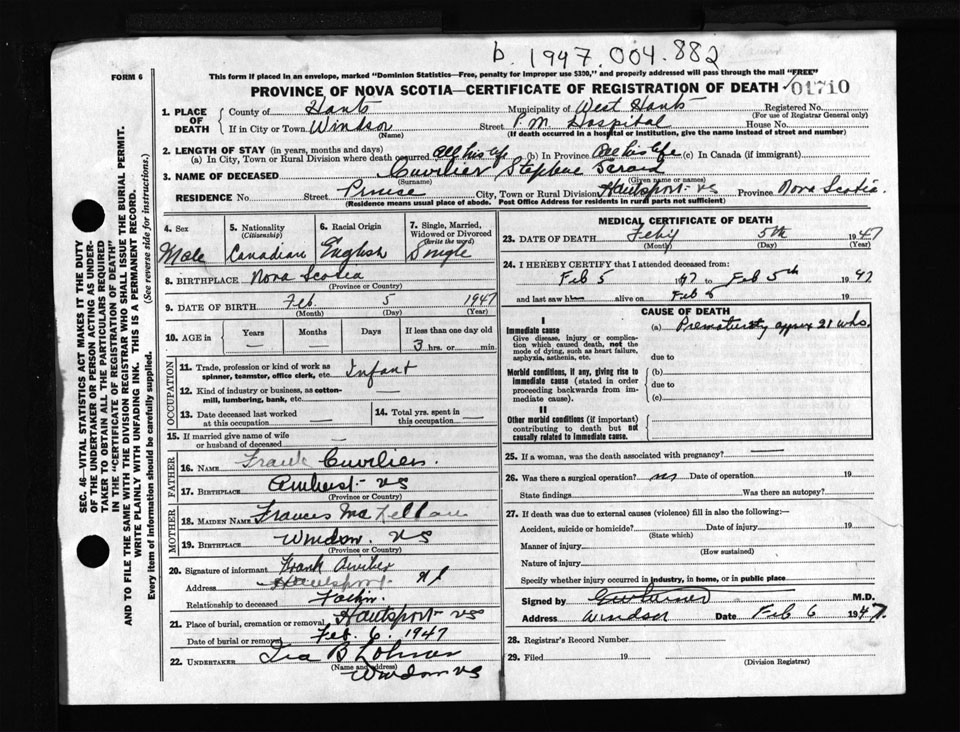 b. 1947.004.882
FORM 6
This form if placed in an envelope, marked "Dominion Statistics—Free, penalty for improper use $300," and properly addressed will pass through the mail "FREE"
PROVINCE OF NOVA SCOTIA—CERTIFICATE OF REGISTRATION OF DEATH 01710
1. PLACE OF DEATH
County of Hants Municipality of West Hants Registered No.
(For use of Registrar General only)
If in City or Town Windsor Street P.M. Hospital House No.
(Name) (If death occurred in a hospital or institution, give the name instead of street and number)
2. LENGTH OF STAY (in years, months and days)
(a) In City, Town or Rural Division where death occurred All his life (b) In Province All his life (c) In Canada (if immigrant)
3. NAME OF DECEASED Cuvilier Stephen
(Surname) (Given name or names)
RESIDENCE No. Street City, Town or Rural Division Hantsport NS Province Nova Scotia
(Residence means usual place of abode. Post Office Address for residents in rural parts not sufficient)
4. Sex
Male
5. Nationality
(Citizenship)
Canadian
6. Racial Origin
English
7. Single, Married, Widowed or Divorced
(write the word)
Single
8. BIRTHPLACE Nova Scotia
(Province or Country)
9. DATE OF BIRTH Feb. 5 1947
(Month) (Day) (Year)
10. AGE in
Years Months Days If less than one day old
— — 3 hrs. or min.
OCCUPATION
11. Trade, profession or kind of work as spinner, teamster, office clerk, etc. Infant
12. Kind of industry or business, as cotton-mill, lumbering, bank, etc.
13. Date deceased last worked at this occupation —
14. Total yrs. spent in this occupation —
15. If married give name of wife or husband of deceased —
FATHER
16. NAME Frank Cuvilier.
17. BIRTHPLACE Amherst NS
(Province or Country)
MOTHER
18. MAIDEN NAME Frances
19. BIRTHPLACE Windsor. NS
(Province or Country)
20. Signature of informant Frank Cuvilier
Address Hantsport
Relationship to deceased Father
21. Place of burial, cremation or removal Hantsport NS
Date of burial or removal Feb. 6. 1947
22. UNDERTAKER Ira B Lohnes
(Name and address)
Windsor NS
MEDICAL CERTIFICATE OF DEATH
23. DATE OF DEATH Feby 5th 1947
(Month) (Day) (Year)
24. I HEREBY CERTIFY that I attended deceased from:
Feb 5 1947 to Feb 5th 1947
and last saw h alive on Feb 5 19
CAUSE OF DEATH
I
Immediate cause
Give disease, injury or complication which caused death, not the mode of dying, such as heart failure, asphyxia, asthenia, etc.
(a) Prematurity approx 21 wks.
due to
Morbid conditions, if any, giving rise to immediate cause (stated in order proceeding backwards from immediate cause).
(b)
due to
(c)
II
Other morbid conditions (if important) contributing to death but not causally related to immediate cause.
25. If a woman, was the death associated with pregnancy? —
26. Was there a surgical operation? no Date of operation 19
State findings Was there an autopsy?
27. If death was due to external causes (violence) fill in also the following:—
Accident, suicide or homicide? Date of injury 19
(State which)
Manner of injury
(How sustained)
Nature of injury
Specify whether injury occurred in industry, in home, or in public place
Signed by M.D.
Address Windsor Date Feb 6 1947.
28. Registrar's Record Number
29. Filed 19
(Division Registrar)
SEC. 46—VITAL STATISTICS ACT MAKES IT THE DUTY
OF THE UNDERTAKER OR PERSON ACTING AS UNDER-
TAKER TO OBTAIN ALL THE PARTICULARS REQUIRED
IN THE "CERTIFICATE OF REGISTRATION OF DEATH"
AND TO FILE THE SAME WITH THE DIVISION REGISTRAR WHO SHALL ISSUE THE BURIAL PERMIT.
WRITE PLAINLY WITH UNFADING INK. THIS IS A PERMANENT RECORD.
Every item of information should be carefully supplied. (See reverse side for instructions.)